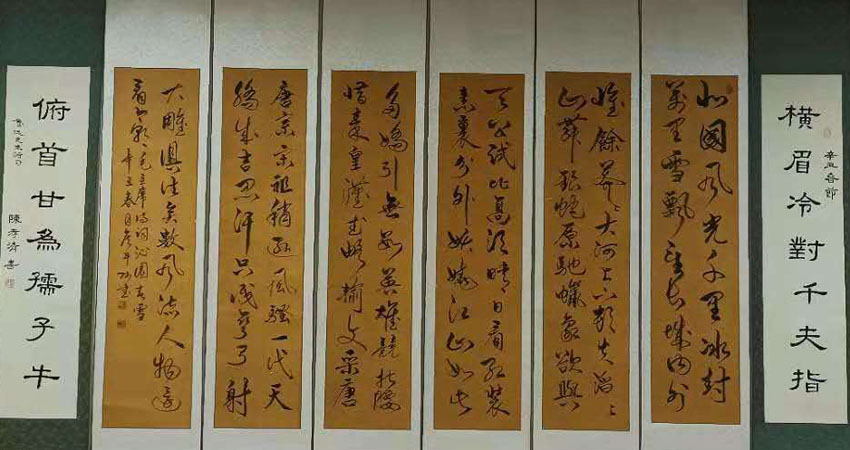 橫眉冷對千夫指
辛丑春節
北國風光千里冰封
萬里雪飄望長城內外
惟餘莽〻大河上下頓失滔〻
山舞銀蛇原馳蠟象欲與
天公試比高須晴日看紅裝
素裹分外妖嬈江山如此
多嬌引無數英雄競折腰
惜秦皇漢武略輸文采唐
唐宗宋祖稍遜風騷一代天
驕成吉思汗只識彎弓射
大雕俱往矣數風流人物還
看今朝毛主席詩詞沁園春雪
辛丑春月書
俯首甘為孺子牛
魯迅先生詩句
陳孝濟書